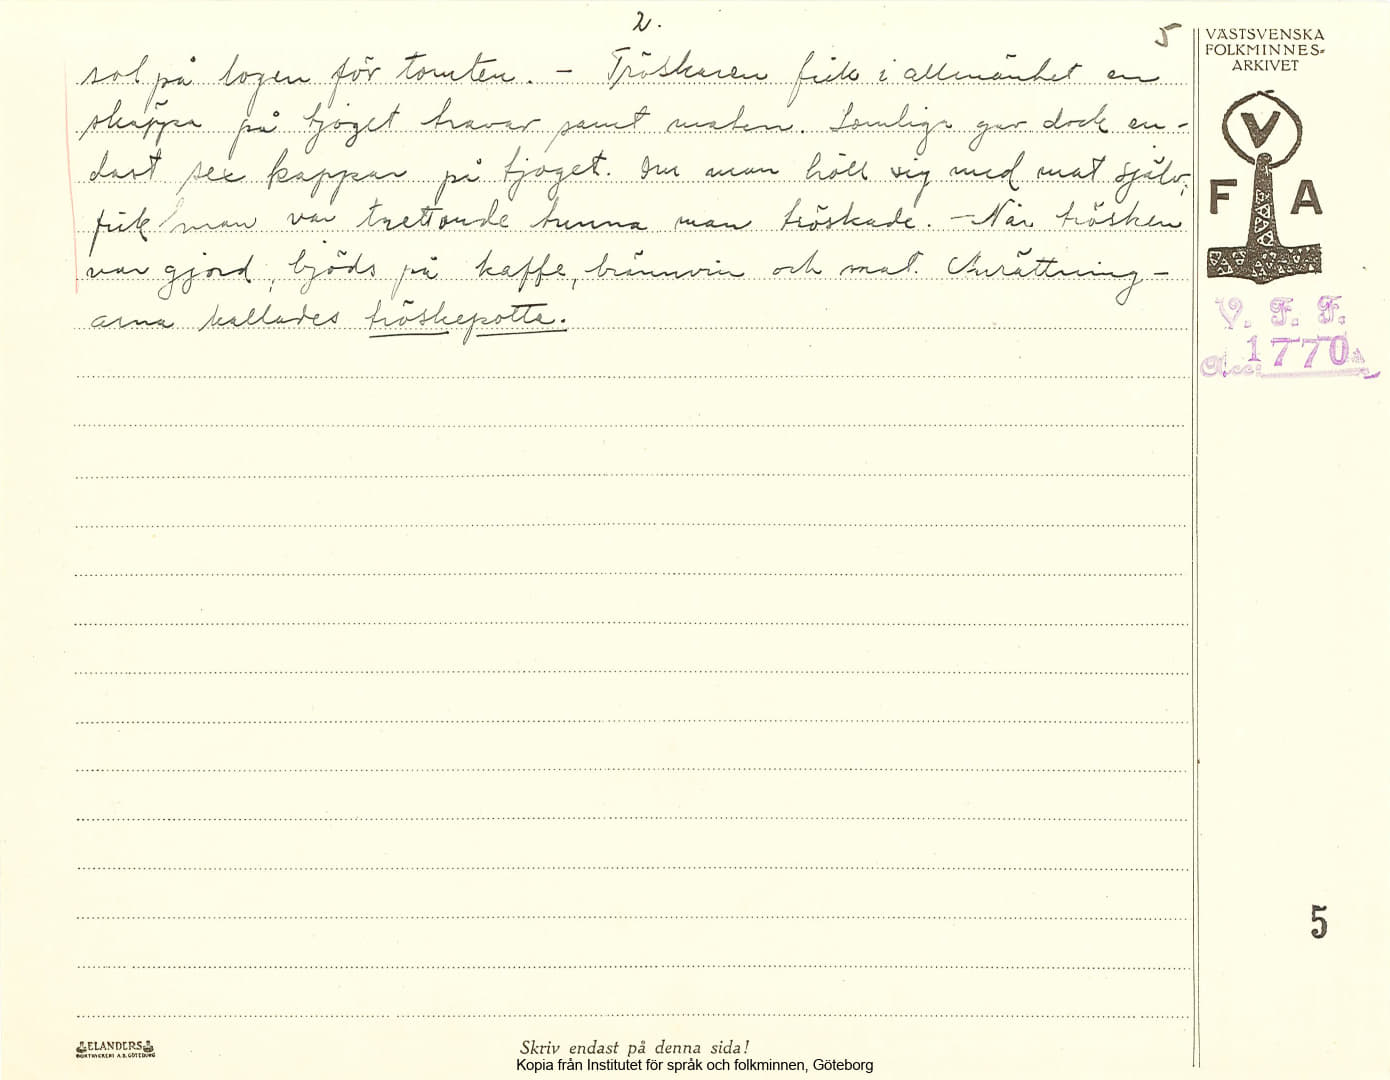 2.
5
sol på logen för tomten. – Tröskaren fick i allmänhet en
skäppa på tjoget travar samt maten. Somliga gav dock en-
dast sex kappar på tjoget. Om man höll sig med mat själv,
fick man var trettonde tunna man tröskade. – När trösken
var gjord, bjöds på kaffe, brännvin och mat. Anrättning-
arna kallades tröskepotta.
VÄSTSVENSKA
FOLKMINNES-
ARKIVET
V
F A
V. F. F.
Acc: 1770
5
ELANDERS
BOKTRYCKERI A.B. GÖTEBORG
Skriv endast på denna sida!
Kopia från Institutet för språk och folkminnen, Göteborg